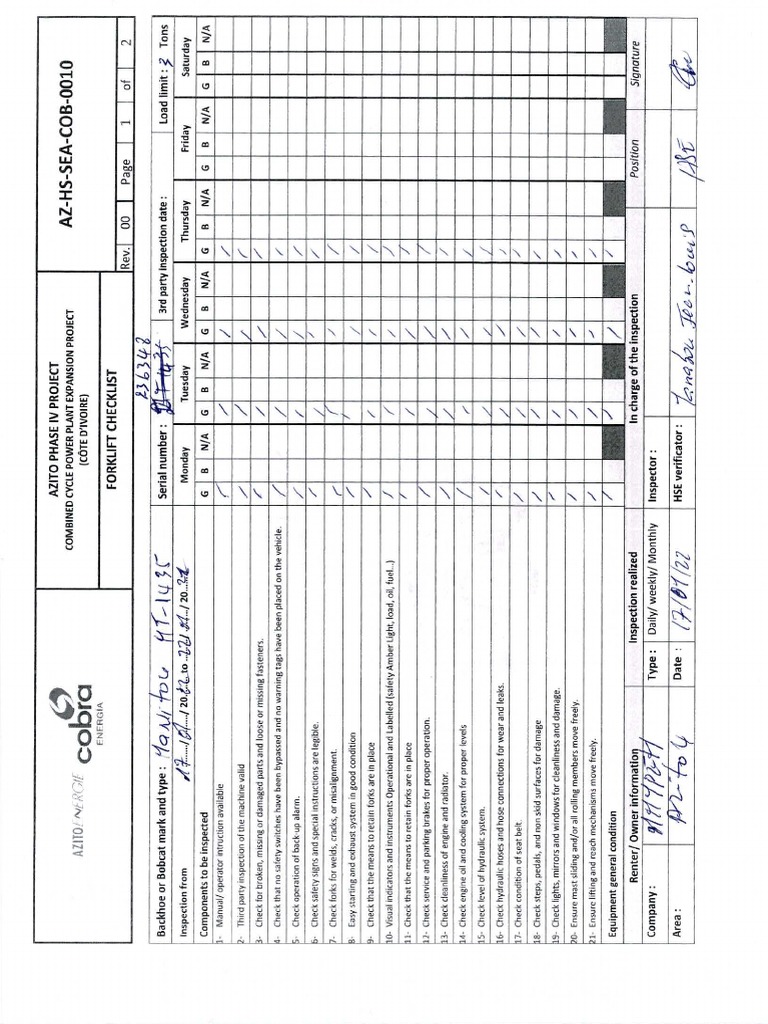 AZITO ENERGIE
cobra
ENERGIA
AZITO PHASE IV PROJECT
COMBINED CYCLE POWER PLANT EXPANSION PROJECT
(CÔTE D'IVOIRE)
FORKLIFT CHECKLIST
AZ-HS-SEA-COB-0010
Rev. 00 Page 1 of 2
236348
Backhoe or Bobcat mark and type : Manitou MT-1435 Serial number : MT-1435 3rd party inspection date : Load limit : 3 Tons
Inspection from 17..../01..../ 20.22 to .22/.01../ 20..22 Monday Tuesday Wednesday Thursday Friday Saturday
Components to be inspected G B N/A G B N/A G B N/A G B N/A G B N/A G B N/A
1- Manual/ operator intruction available / / / /
2- Third party inspection of the machine valid / / / /
3- Check for broken, missing or damaged parts and loose or missing fasteners. / / / /
4- Check that no safety switches have been bypassed and no warning tags have been placed on the vehicle. / / / /
5- Check operation of back-up alarm. / / / /
6- Check safety signs and special instructions are legible. / / / /
7- Check forks for welds, cracks, or misalignment. / / / /
8- Easy starting and exhaust system in good condition / / / /
9- Check that the means to retain forks are in place / / / /
10- Visual indicators and instruments Operational and Labelled (safety Amber Light, load, oil, fuel...) / / / /
11- Check that the means to retain forks are in place / / / /
12- Check service and parking brakes for proper operation. / / / /
13- Check cleanliness of engine and radiator. / / / /
14- Check engine oil and cooling system for proper levels / / / /
15- Check level of hydraulic system. / / / /
16- Check hydraulic hoses and hose connections for wear and leaks. / / / /
17- Check condition of seat belt. / / / /
18- Check steps, pedals, and non skid surfaces for damage / / / /
19- Check lights, mirrors and windows for cleanliness and damage. / / / /
20- Ensure mast sliding and/or all rolling members move freely. / / / /
21- Ensure lifting and reach mechanisms move freely. / / / /
Equipment general condition / / / /
Renter/ Owner information Inspection realized In charge of the inspection Position Signature
Company : Type : Daily/ weekly/ Monthly Inspector :
Area : Azito 4 Date : 17/01/22 HSE verificator : Jean-Louis HSE